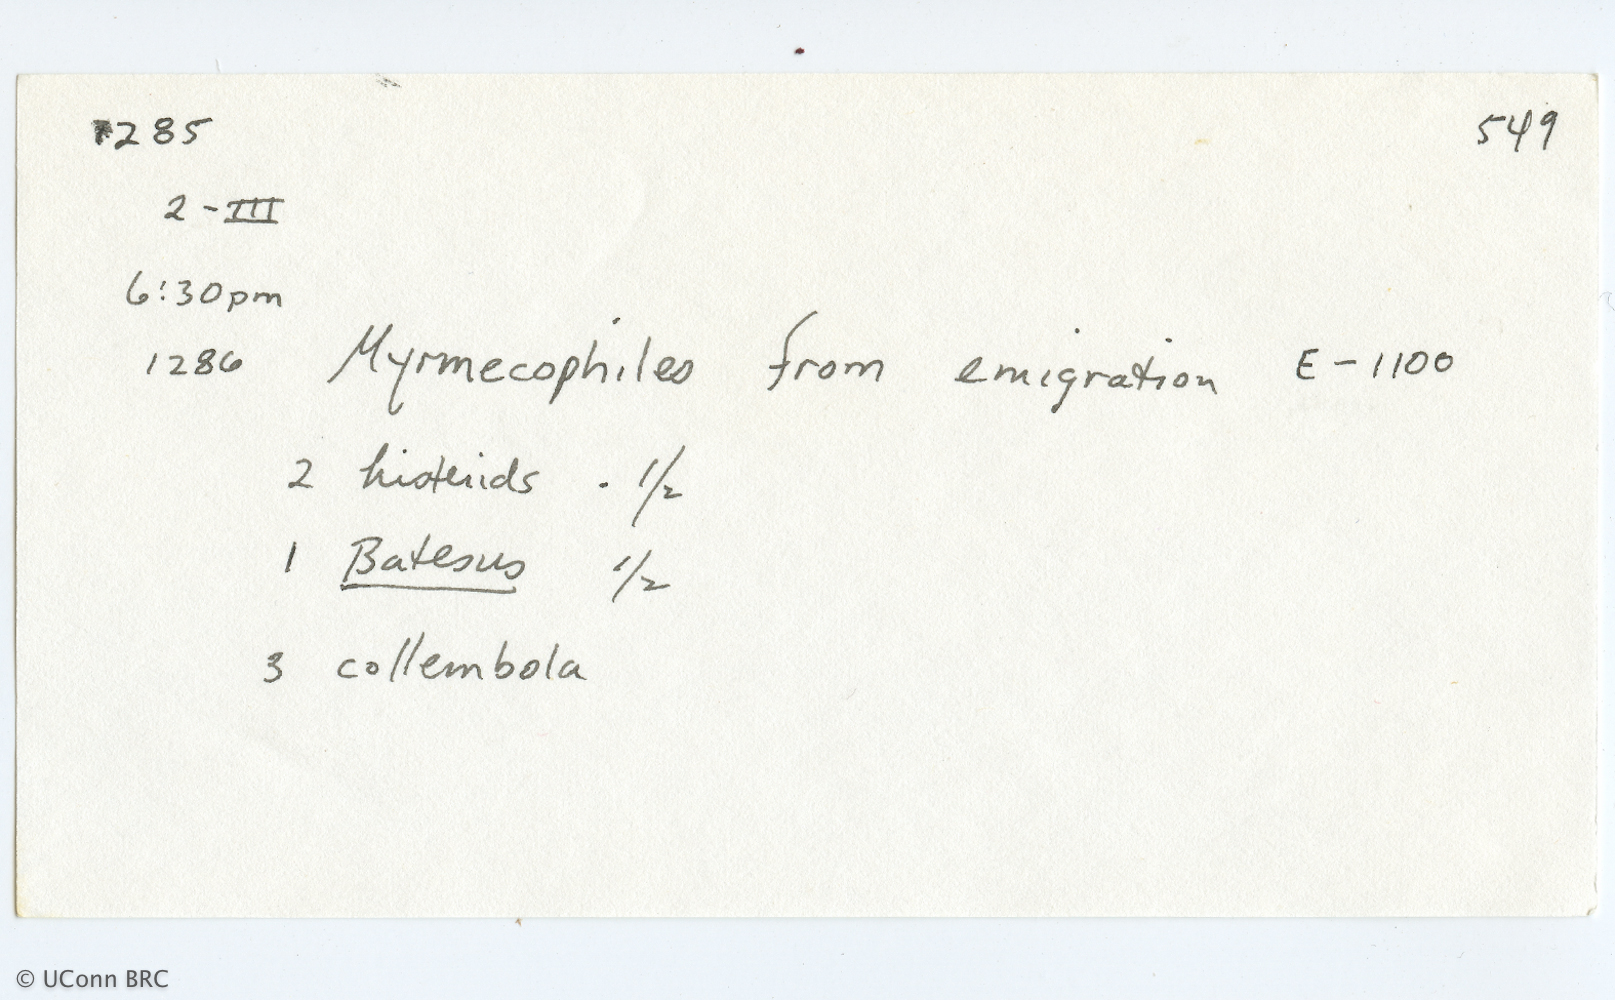 1285 549
2-III
6:30pm
1286 Myrmecophiles from emigration E-1100
2 histerids . 1/2
1 Batesus 1/2
3 collembola
© UConn BRC